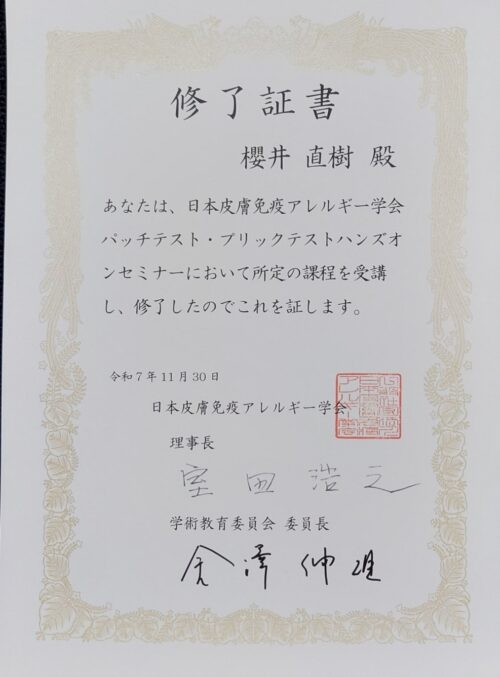 修了証書
櫻井 直樹 殿
あなたは、日本皮膚免疫アレルギー学会
パッチテスト・プリックテストハンズオ
ンセミナーにおいて所定の課程を受講
し、修了したのでこれを証します。
令和7年11月30日
日本皮膚免疫アレルギー学会
理事長
室田 浩之
学術教育委員会 委員長